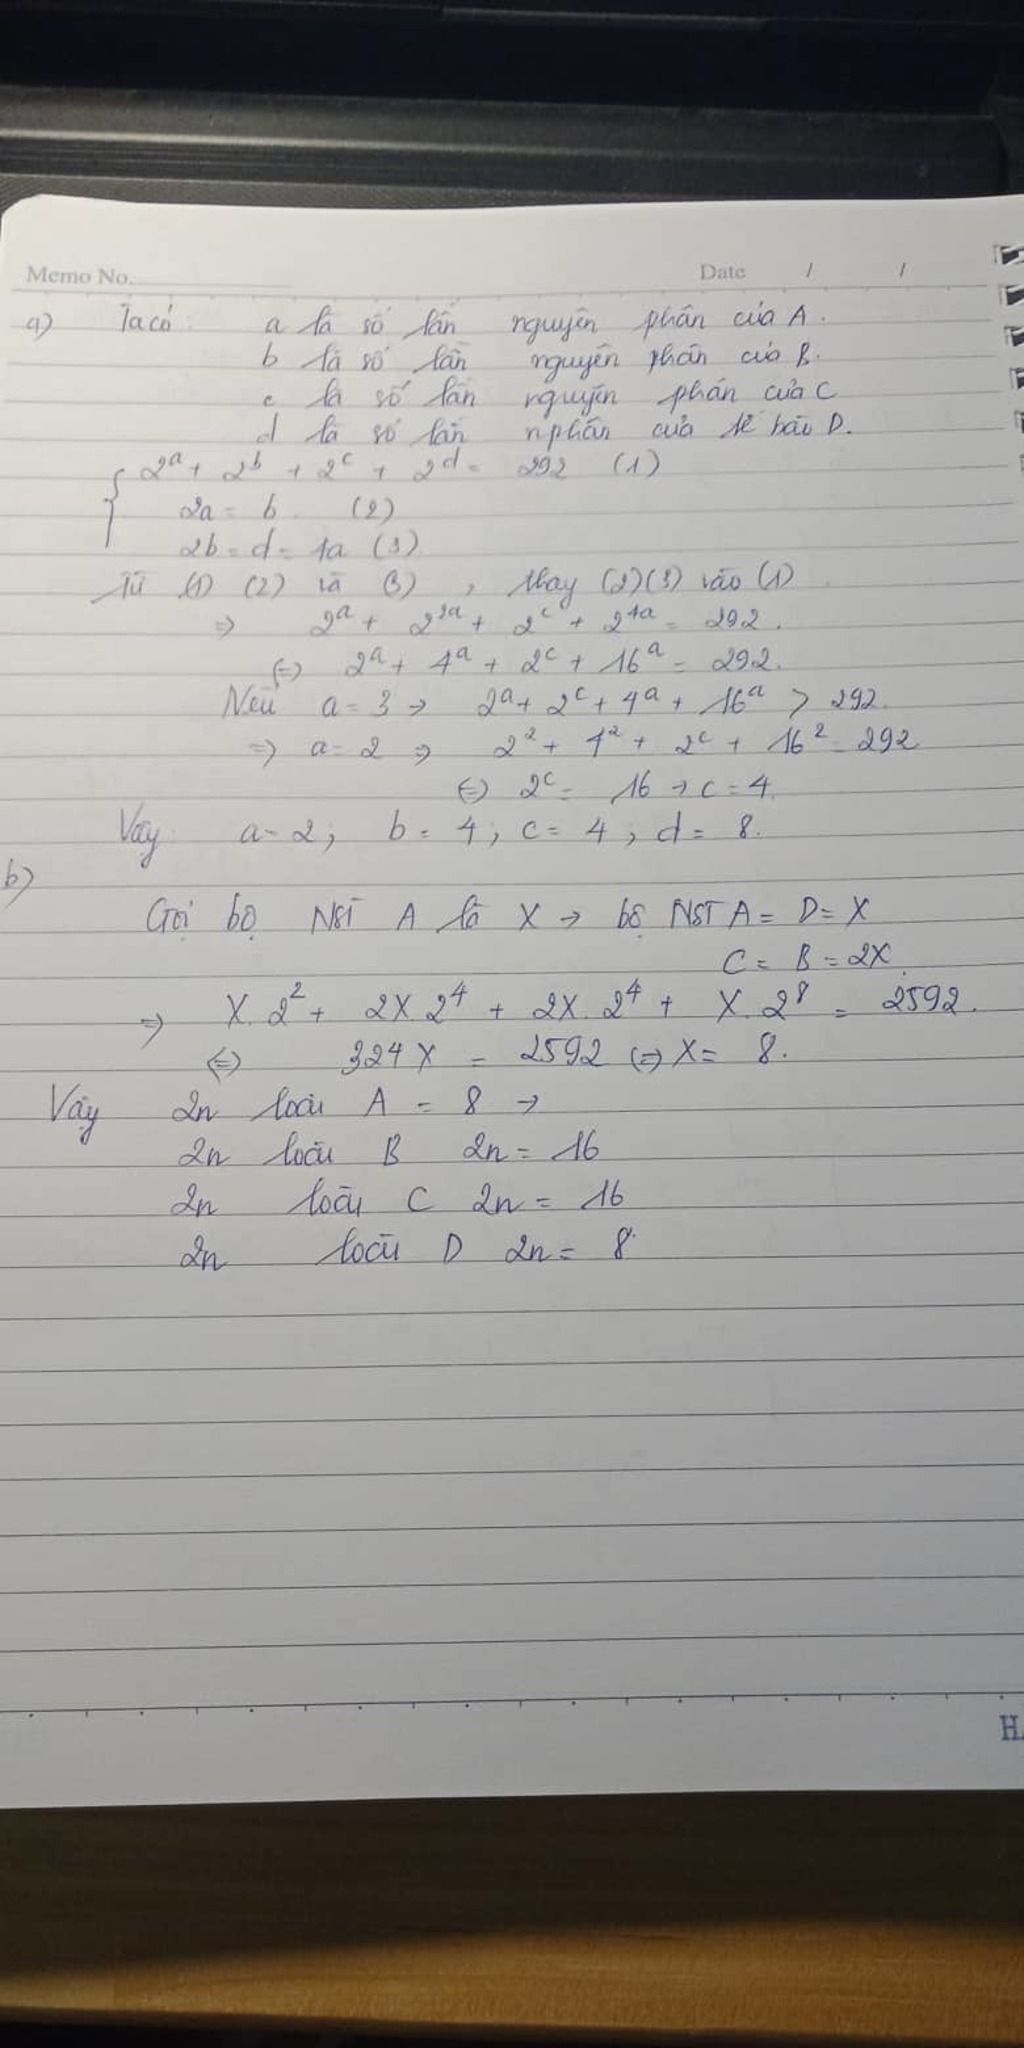 Memo No.
Date / /
a) Ta có: a là số lần nguyên phân của A.
b là số lần nguyên phân của B.
c là số lần nguyên phân của C
d là số lần nphân của tế bào D.
2^a + 2^b + 2^c + 2^d = 292 (1)
2a = b (2)
2b = d = 4a (3)
Từ (1) (2) và (3), thay (2)(3) vào (1)
⇒ 2^a + 2^2a + 2^c + 2^4a = 292.
(=) 2^a + 4^a + 2^c + 16^a = 292.
Nếu a = 3 → 2^a + 2^c + 4^a + 16^a > 292.
⇒ a = 2 ⇒ 2^2 + 4^2 + 2^c + 16^2 = 292
(=) 2^c = 16 → c = 4.
Vậy: a = 2; b = 4; c = 4; d = 8.
b)
Gọi bộ NST A là X → bộ NST A = D = X
C = B = 2X.
⇒ X. 2^2 + 2X. 2^4 + 2X. 2^4 + X. 2^8 = 2592.
(=) 324X = 2592 (=) X = 8.
Vậy 2n loài A = 8 →
2n loài B 2n = 16
2n loài C 2n = 16
2n loài D 2n = 8